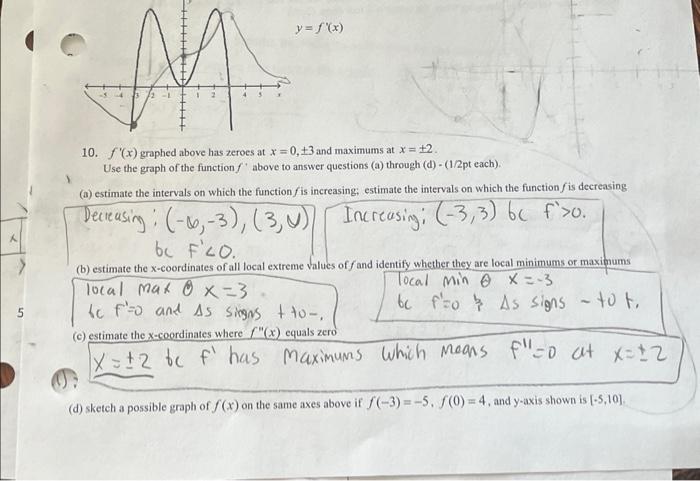 y = f'(x)
-5 -4 -2 -1 1 2 4 5 x
10. f'(x) graphed above has zeroes at x = 0, ±3 and maximums at x = ±2.
Use the graph of the function f' above to answer questions (a) through (d) - (1/2pt each).
(a) estimate the intervals on which the function f is increasing; estimate the intervals on which the function f is decreasing
Decreasing: (-∞,-3), (3,∞) Increasing: (-3,3) bc f'>0.
bc F'<0.
(b) estimate the x-coordinates of all local extreme values of f and identify whether they are local minimums or maximums
local max @ x=3 local min @ x=-3
bc f'=0 and Δs signs + to -. bc f'=0 & Δs signs - to +.
5
(c) estimate the x-coordinates where f"(x) equals zero
X = ±2 bc f' has maximums which means f"=0 at x=±2
(d) sketch a possible graph of f(x) on the same axes above if f(-3) = -5, f(0) = 4, and y-axis shown is [-5,10].